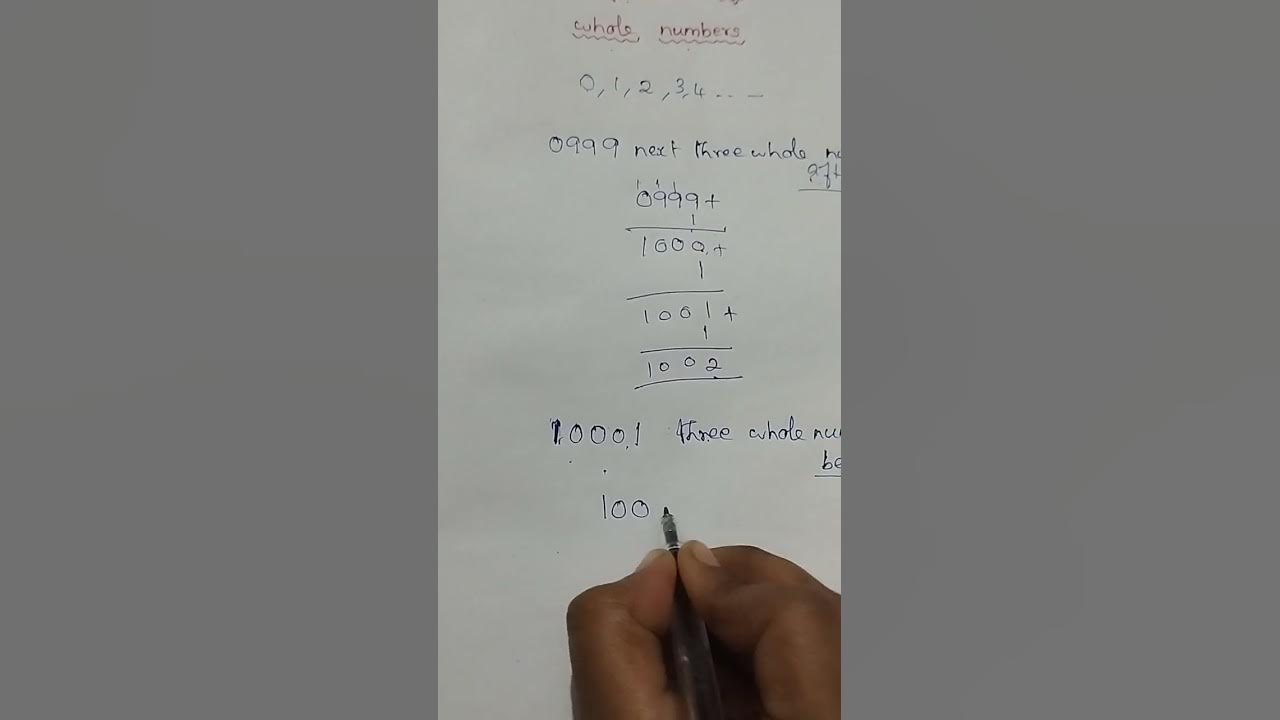 whole numbers
0, 1, 2, 3, 4 .. —
0999 next three whole
1 1 1
0999 +
1
1000 +
1
1001 +
1
1002
10001 three whole
100